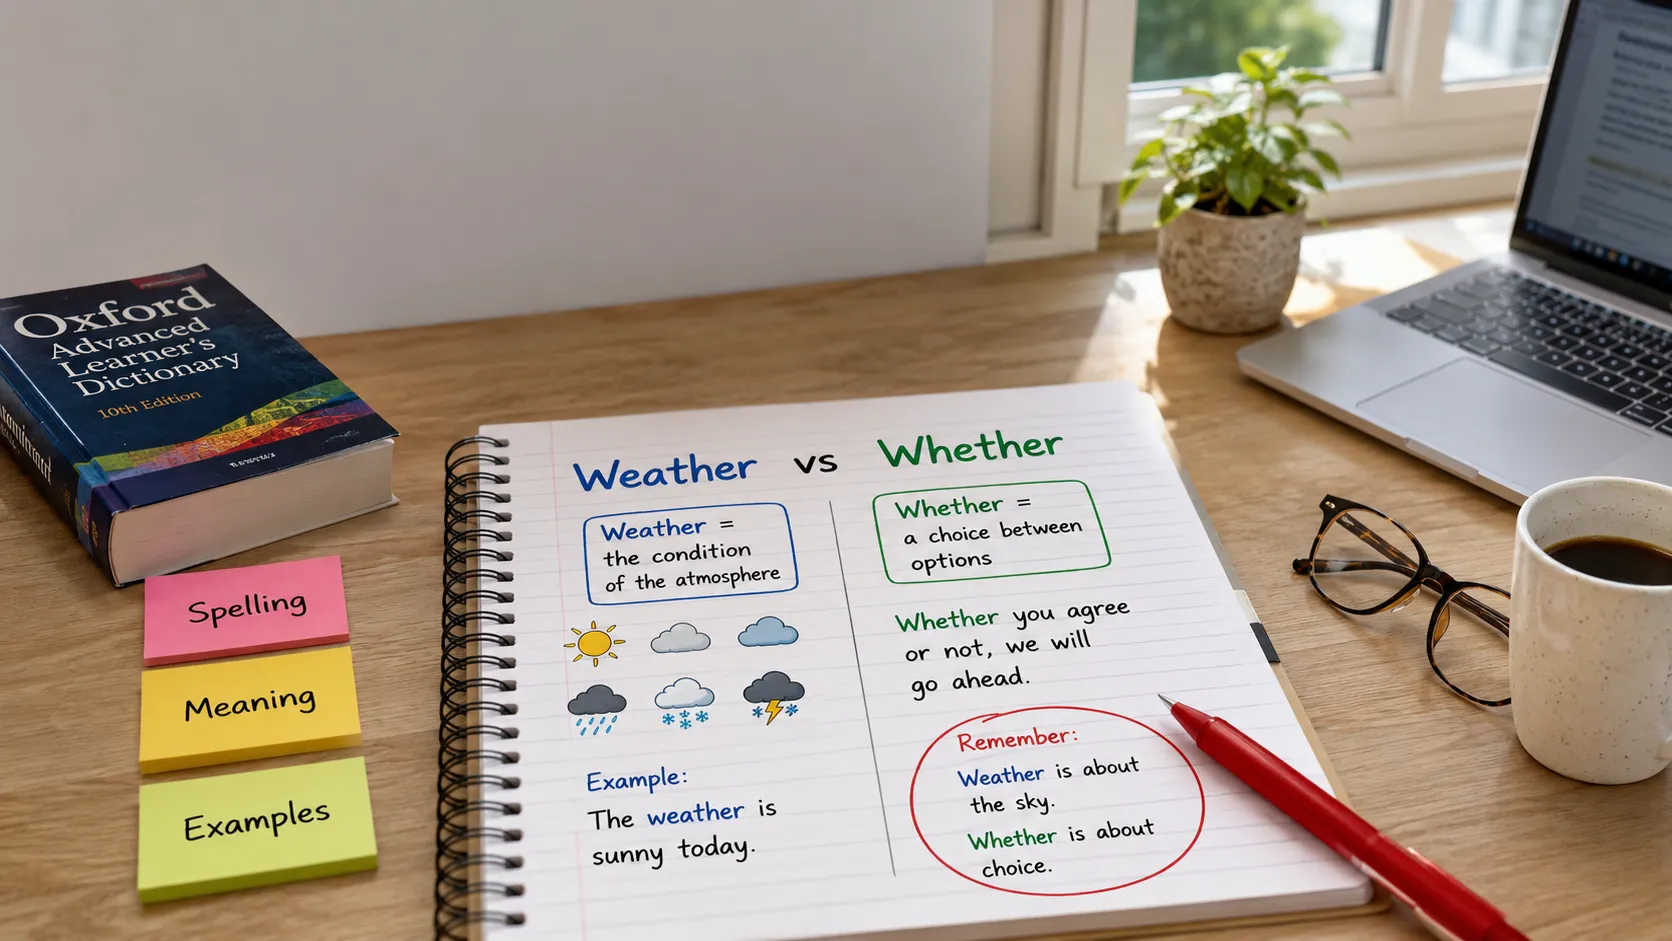 Oxford
Advanced
Learner's
Dictionary
10th Edition
Spelling
Meaning
Examples
Weather vs Whether
Weather =
the condition
of the atmosphere
Example:
The weather is
sunny today.
Whether =
a choice between
options
Whether you agree
or not, we will
go ahead.
Remember:
Weather is about
the sky.
Whether is about
choice.